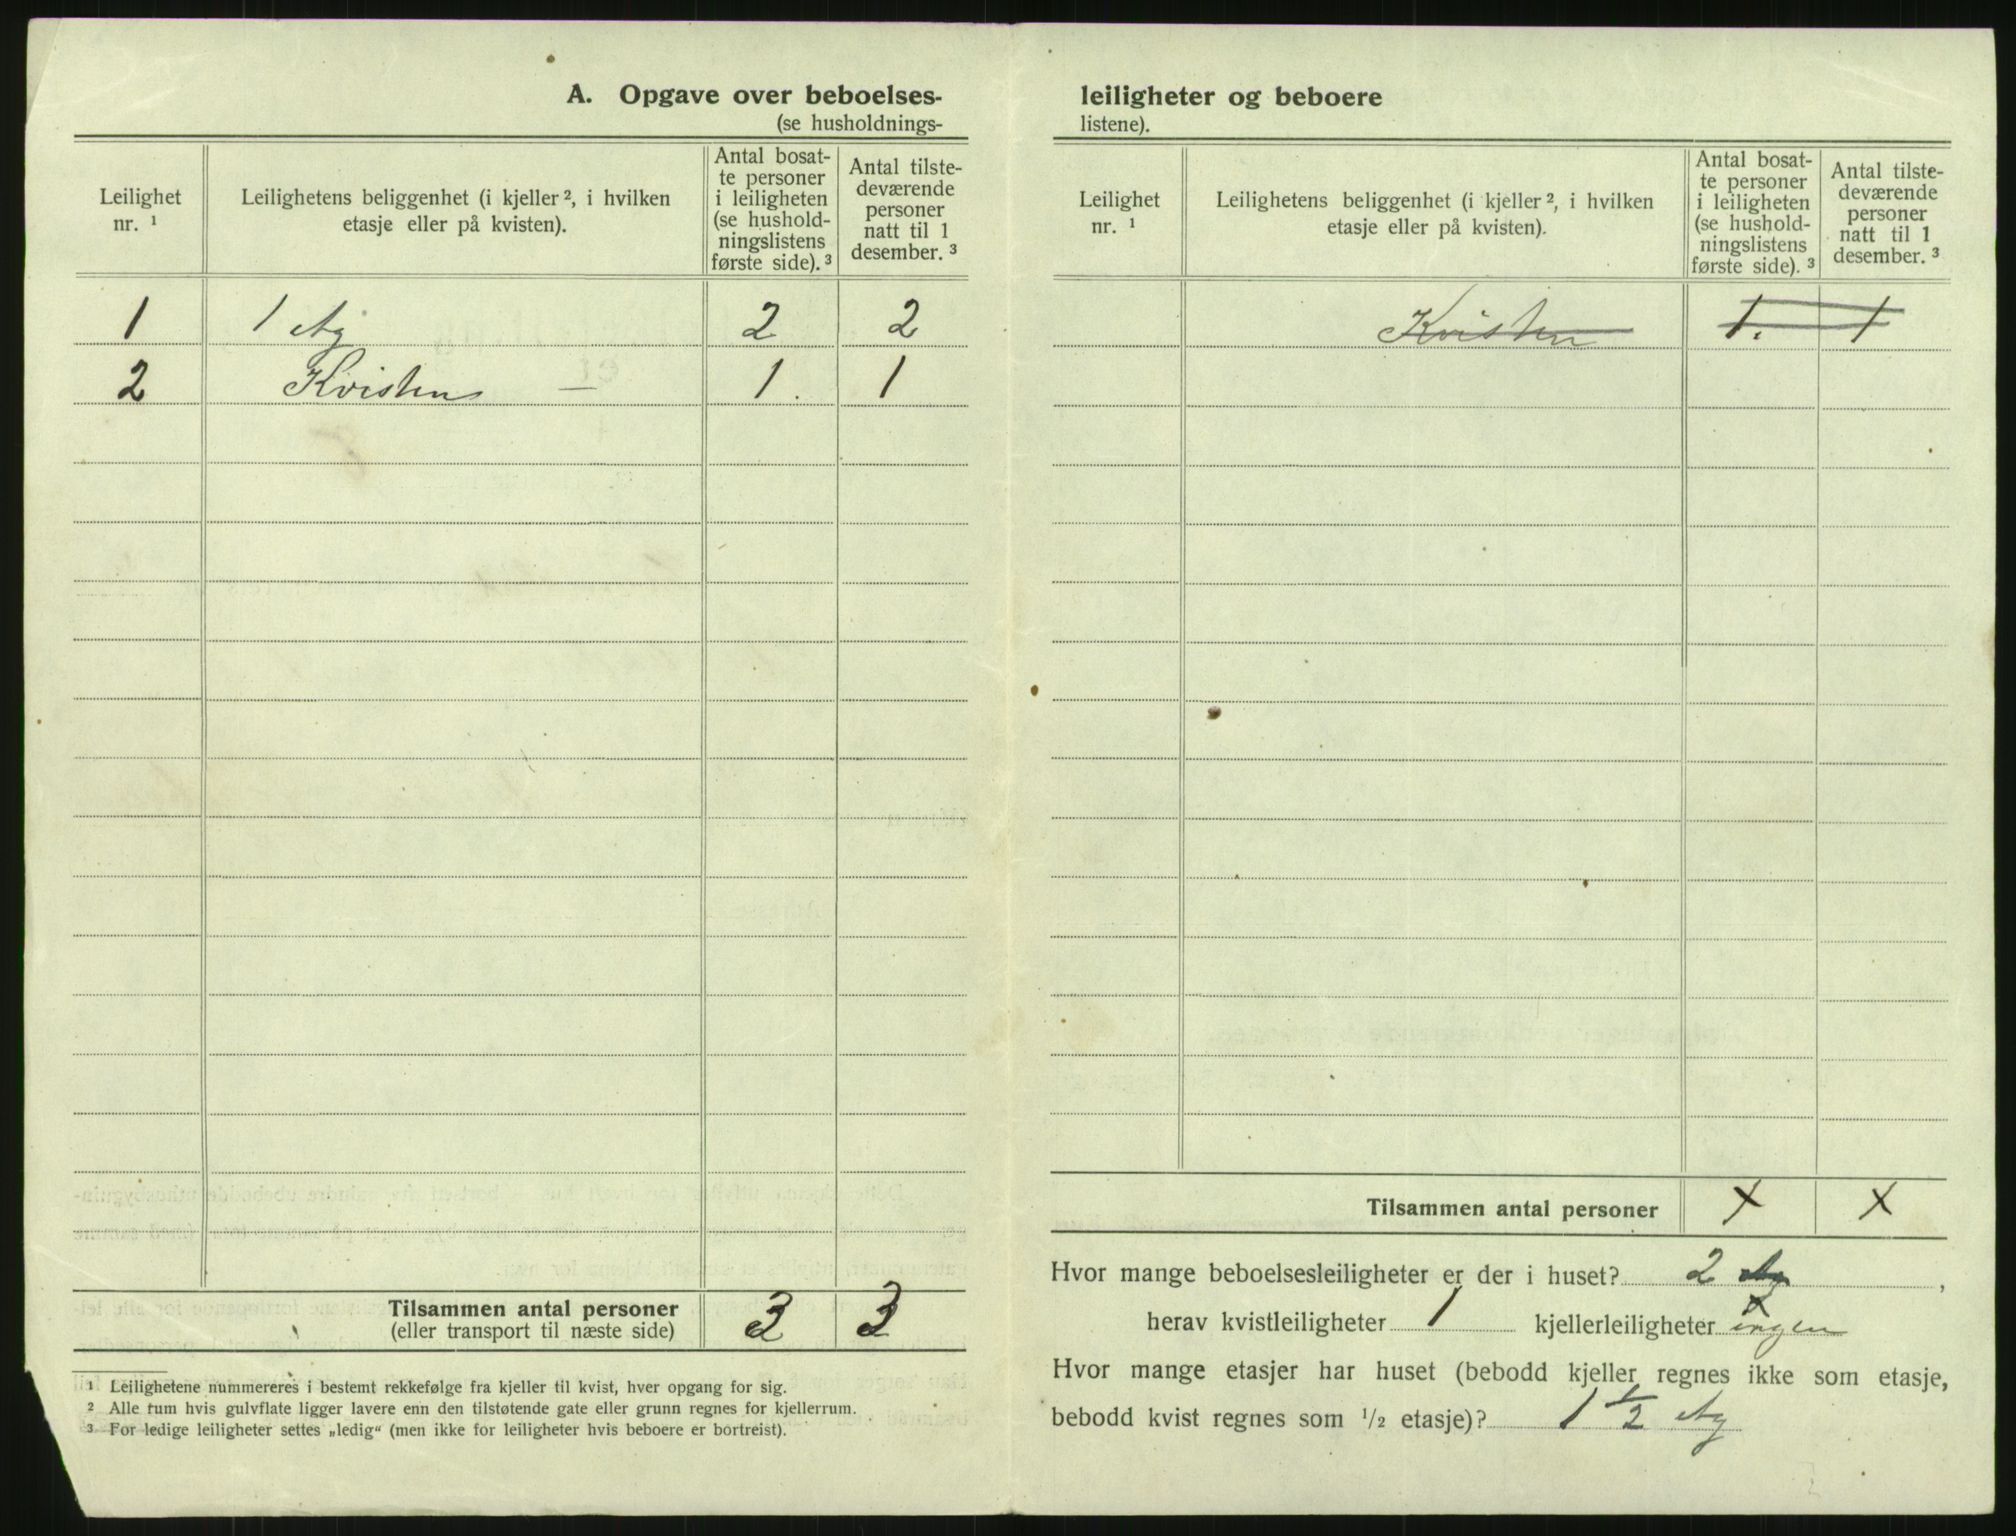 A. Opgave over beboelses-
(se husholdnings-
Leilighet
nr. ¹
Leilighetens beliggenhet (i kjeller ², i hvilken
etasje eller på kvisten).
Antal bosat-
te personer
i leiligheten
(se hushold-
ningslistens
første side). ³
Antal tilste-
deværende
personer
natt til 1
desember. ³
1 1 Etg 2 2
2 Kvisten — 1. 1
Tilsammen antal personer
(eller transport til næste side) 3 3
¹ Leilighetene nummereres i bestemt rekkefølge fra kjeller til kvist, hver opgang for sig.
² Alle rum hvis gulvflate ligger lavere enn den tilstøtende gate eller grunn regnes for kjellerrum.
³ For ledige leiligheter settes „ledig“ (men ikke for leiligheter hvis beboere er bortreist).
leiligheter og beboere
listene).
Leilighet
nr. ¹
Leilighetens beliggenhet (i kjeller ², i hvilken
etasje eller på kvisten).
Antal bosat-
te personer
i leiligheten
(se hushold-
ningslistens
første side). ³
Antal tilste-
deværende
personer
natt til 1
desember. ³
Kvisten 1. 1
Tilsammen antal personer x x
Hvor mange beboelsesleiligheter er der i huset? 2 Etg,
herav kvistleiligheter 1 kjellerleiligheter x ingen
Hvor mange etasjer har huset (bebodd kjeller regnes ikke som etasje,
bebodd kvist regnes som ¹/₂ etasje)? 1 ½ Etg